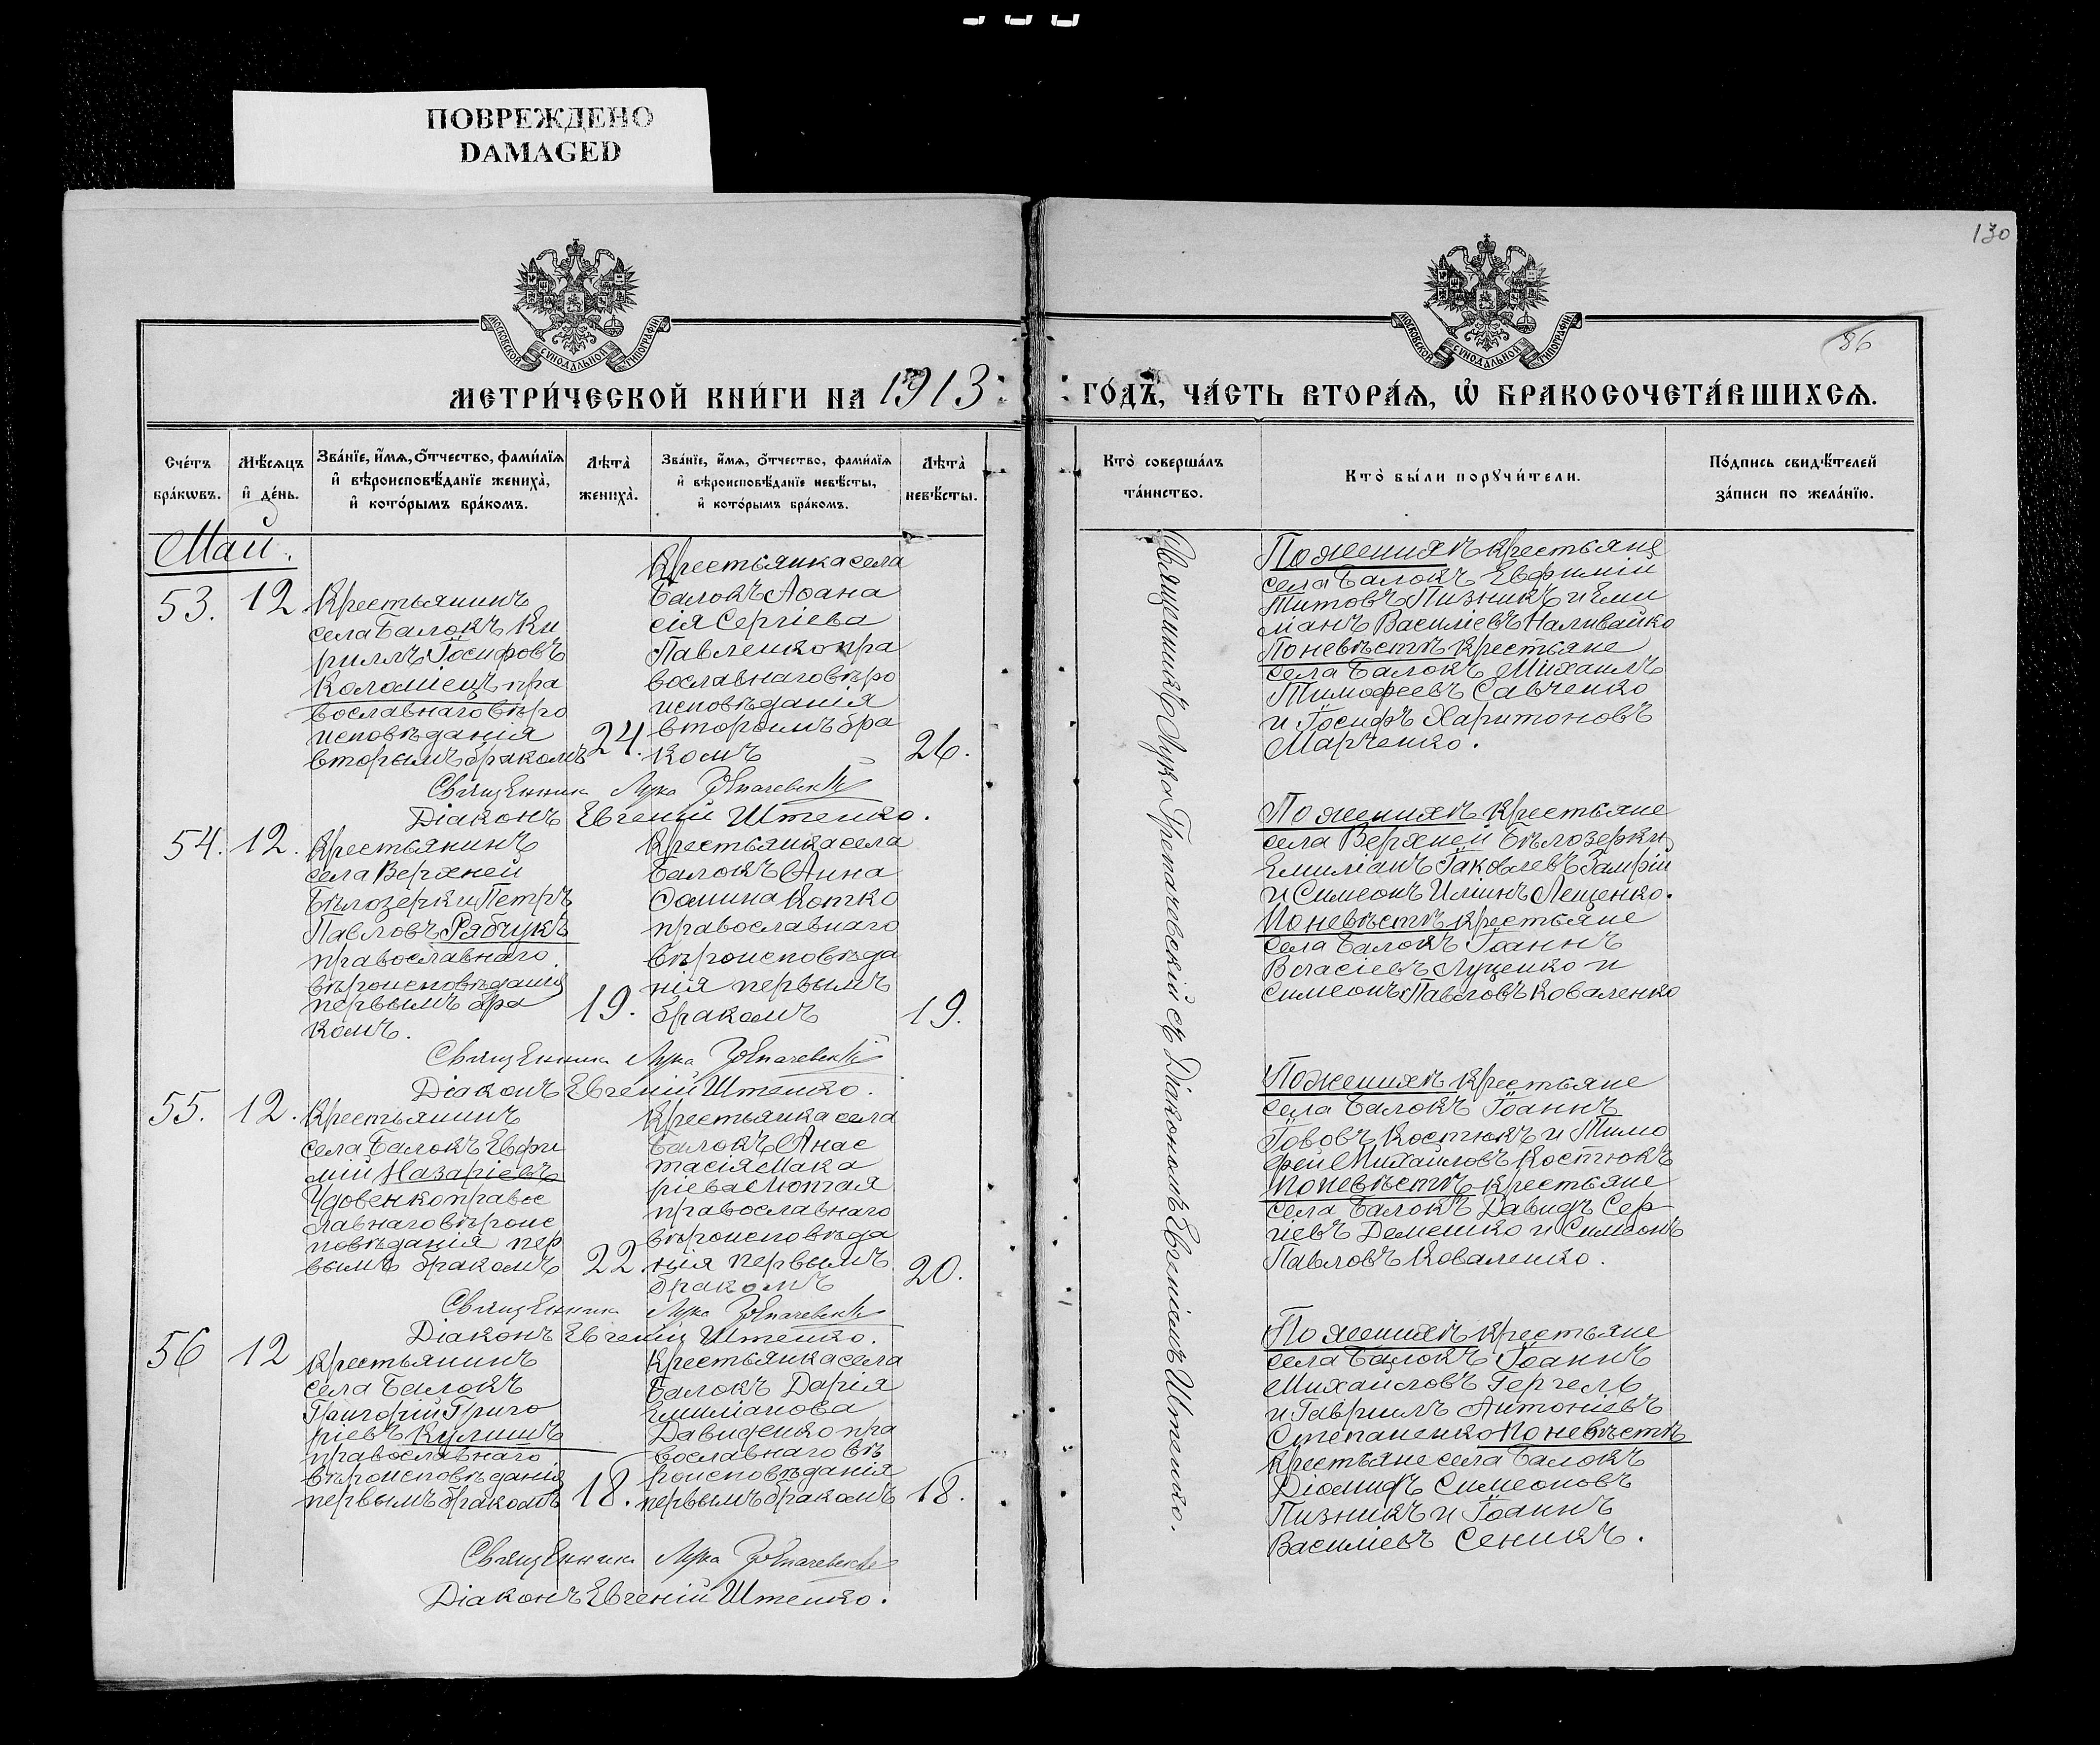 ПОВРЕЖДЕНО
DAMAGED
130
86
МОСКОВСКОЙ СѴНОДАЛЬНОЙ ТИПОГРАФІИ
МОСКОВСКОЙ СѴНОДАЛЬНОЙ ТИПОГРАФІИ
МЕТРИ́ЧЕСКОЙ КНИ́ГИ НА 1913
ГО́ДЪ, ЧА́СТЬ ВТОРА́Ѧ, Ѽ БРАКОСОЧЕТА́ВШИХСѦ.
Сче́тъ бра́кѡвъ.
Мѣ́сѧцъ и҆ де́нь.
Зва́нїе, и҆́мѧ, ѻ҆́тчество, фами́лїѧ и҆ вѣроисповѣ́данїе жениха̀, и҆ кото́рымъ бра́комъ.
Лѣ́та̀ жениха̀.
Зва́нїе, и҆́мѧ, ѻ҆́тчество, фами́лїѧ и҆ вѣроисповѣ́данїе невѣ́сты, и҆ кото́рымъ бра́комъ.
Лѣ́та̀ невѣ́сты.
Кто̀ соверша́лъ та́инство.
Кто̀ бы́ли порꙋчи́тели.
По́дпись свидѣ́телей за́писи по жела́нїю.
Май.
53. 12
Крестьянинъ
села Балокъ Ки
риллъ Іосифовъ
Коломіецъ пра
вославнаго вѣро
исповѣданія
вторымъ бракомъ
24.
Крестьянка села
Балокъ Аѳана
сія Сергіева
Павленко пра
вославнаго вѣро
исповѣданія
вторымъ бра
комъ
26.
Священникъ Лука
Діаконъ Евгеній Штепко.
54. 12.
Крестьянинъ
села Верхней
Бѣлозерки Петръ
Павловъ Рябчукъ
православнаго
вѣроисповѣданія
первымъ бра
комъ.
19.
Крестьянка села
Балокъ Анна
Ѳомина Котко
православнаго
вѣроисповѣда
нія первымъ
бракомъ
19.
Священникъ Лука
Діаконъ Евгеній Штепко.
55. 12.
Крестьянинъ
села Балокъ Евфи
мій Назаріевъ
Удовенко правос
лавнаго вѣроис
повѣданія пер
вымъ бракомъ
22.
Крестьянка села
Балокъ Анас
тасія Мака
ріева Лютая
православнаго
вѣроисповѣда
нія первымъ
бракомъ
20.
Священникъ Лука
Діаконъ Евгеній Штепко.
56 12
Крестьянинъ
села Балокъ
Григорій Григо
ріевъ Кулишъ
православнаго
вѣроисповѣданія
первымъ бракомъ
18.
Крестьянка села
Балокъ Дарія
Емиліанова
Давиденко пра
вославнаго вѣ
роисповѣданія
первымъ бракомъ
18.
Священникъ Лука
Діаконъ Евгеній Штепко.
Священникъ Лука Гретачевскій съ Діакономъ Евгеніемъ Штепко.
По женихѣ крестьяне
села Балокъ Евфимій
Титовъ Пизникъ и Еми
ліанъ Василіевъ Наливайко
По невѣстѣ крестьяне
села Балокъ Михаилъ
Тимофеевъ Савченко
и Іосифъ Харитоновъ
Марченко.
По женихѣ крестьяне
села Верхней Бѣлозерки
Емиліанъ Іаковлевъ Замрій
и Симеонъ Иліинъ Лещенко.
По невѣстѣ крестьяне
села Балокъ Іоаннъ
Власіевъ Луценко и
Симеонъ Павловъ Коваленко
По женихѣ крестьяне
села Балокъ Іоаннъ
Іововъ Костюкъ и Тимо
фей Михайловъ Костюкъ
По невѣстѣ крестьяне
села Балокъ Давидъ Сер
гіевъ Демешко и Симеонъ
Павловъ Коваленко.
По женихѣ крестьяне
села Балокъ Іоаннъ
Михайловъ Гергель
и Гавриилъ Антоніевъ
Степаненко По невѣстѣ
крестьяне села Балокъ
Діомидъ Симеоновъ
Пизникъ и Іоаннъ
Василіевъ Сеникъ.